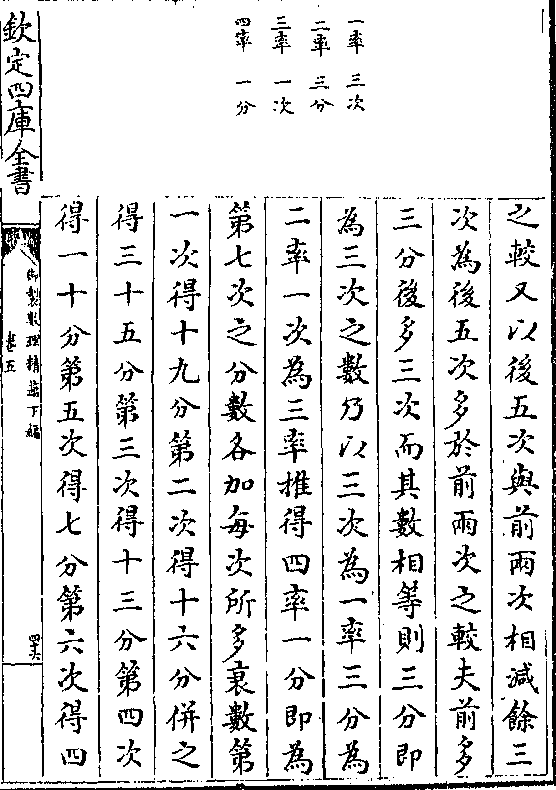 一率　三次
二率　三分
三率　一次
四率　一分
之較又以後五次與前兩次相減餘三
次為後五次多於前兩次之較夫前多
三分後多三次而其數相等則三分即
為三次之數乃以三次為一率三分為
二率一次為三率推得四率一分即為
第七次之分數各加每次所多衰數第
一次得十九分第二次得十六分併之
得三十五分第三次得十三分第四次
得一十分第五次得七分第六次得四
欽定四庫全書
御製數理精蘊下編
卷五
四六